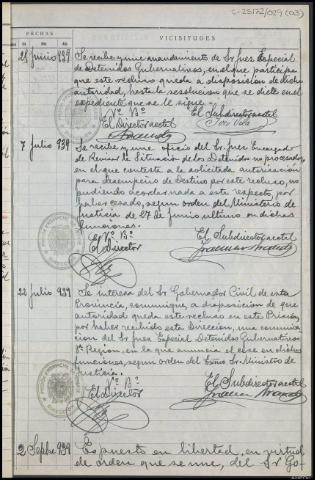 C-25172/029 (03)
FECHAS
VICISITUDES
Día Mes Año
21 Junio 939
Se recibe y une mandamiento de Sr Juez Especial
de Detenidos Gubernativos, en el que participa
que este recluso queda a disposicion de dicha
autoridad, hasta la resolucion que se dicte en el
expediente que se le sigue.
Vº Bº
El Director actal
El Subdirector actal
7 Julio 939
Se recibe y une oficio del Sr Juez Encargado
de Revisar la Situacion de los Detenidos no procesados,
en el que contesta a la solicitada autorizacion
para desempeño de destino por este recluso, no
pudiendo acordar nada a este respecto, por
haber cesado, segun orden del Ministerio de
Justicia de 27 de junio ultimo en dichas
funciones.
Vº Bº
El Director
El Subdirector actal
22 julio 939
Se interesa del Sr Gobernador Civil de esta
Provincia, comunique a disposicion de que
autoridad queda este recluso en esta Prision,
por haber recibido esta Direccion, una comunicacion
del Sr Juez Especial Detenidos Gubernativos
1ª Region, en la que anuncia el cese en dichas
funciones, segun orden del Exmo Sr Ministro de
Justicia.
Vº Bº
El Director
El Subdirector actal
2 Sepbre 939
Es puesto en libertad, en virtud
de orden que se une, del Sr Go-